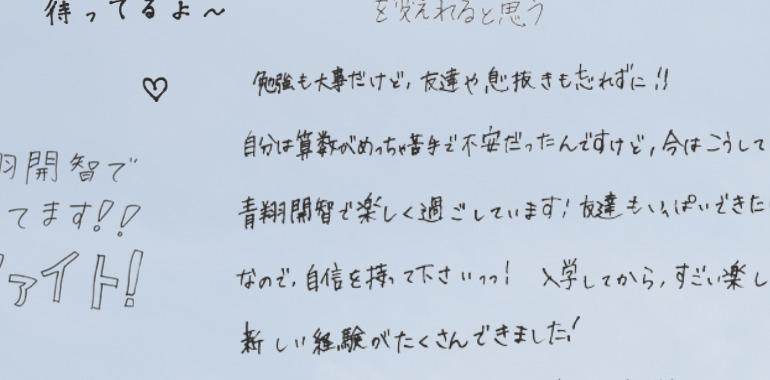 待ってるよ〜
を変えれると思う
♡
勉強も大事だけど、友達や息抜きも忘れずに!!
自分は算数がめっちゃ苦手で不安だったんですけど、今はこうして
羽開智で
青翔開智で楽しく過ごしています!友達もいっぱいできた
てます!!
なので、自信を持って下さいっっ! 入学してから、すごい楽し
ファイト!
新しい経験がたくさんできました!